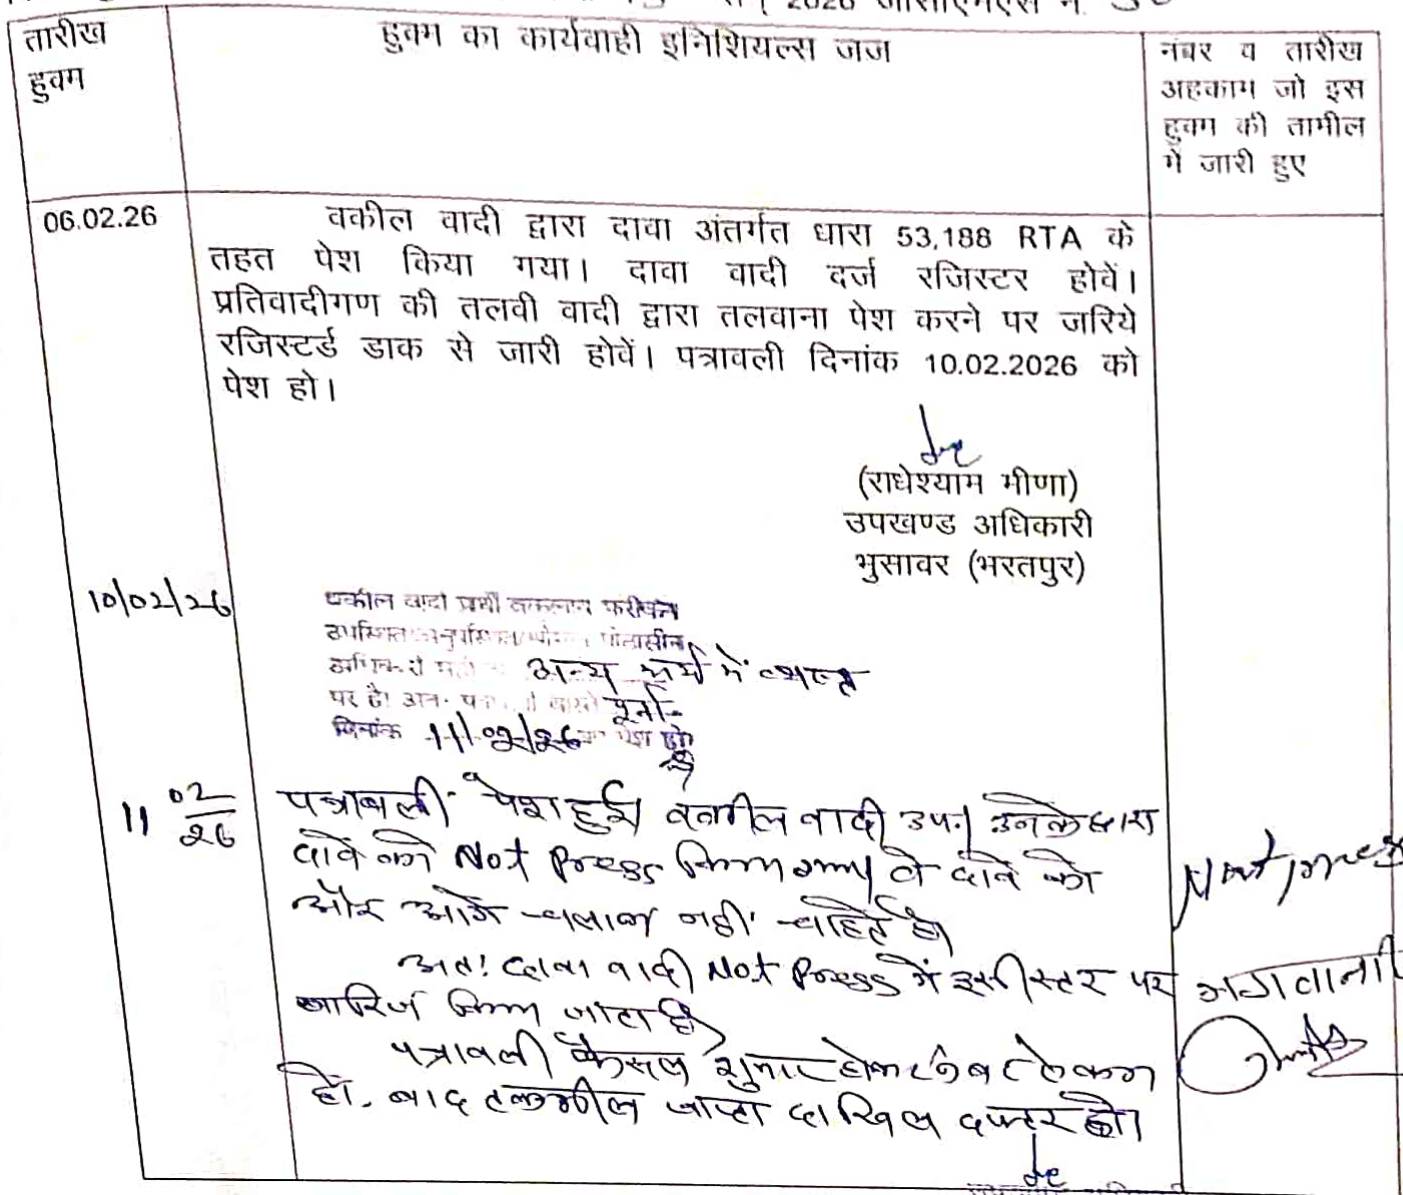 2026
तारीख
हुक्म
हुक्म का कार्यवाही इनिशियल्स जज
नंबर व तारीख
अहकाम जो इस
हुक्म की तामील
में जारी हुए
06.02.26
वकील वादी द्वारा दावा अंतर्गत धारा 53,188 RTA के
तहत पेश किया गया। दावा वादी दर्ज रजिस्टर होवें।
प्रतिवादीगण की तलवी वादी द्वारा तलवाना पेश करने पर जरिये
रजिस्टर्ड डाक से जारी होवें। पत्रावली दिनांक 10.02.2026 को
पेश हो।
(राधेश्याम मीणा)
उपखण्ड अधिकारी
भुसावर (भरतपुर)
10/02/26
वकील वादी
अन्य कार्य में व्यस्त
पर है।
दिनांक 11/02/26 पेश हो
11 02/26
पत्रावली पेश हुई। वकील वादी उप.। उनके द्वारा
दावे को Not Press किया गया। वे दावे को
और आगे चलाना नहीं चाहते है।
अतः दावा वादी Not Press में इसी स्तर पर
खारिज किया जाता है।
पत्रावली फैसल शुमार होकर नम्बर से कम
हो. बाद तकमील जाप्ता दाखिल दफ्तर हो।
Not press